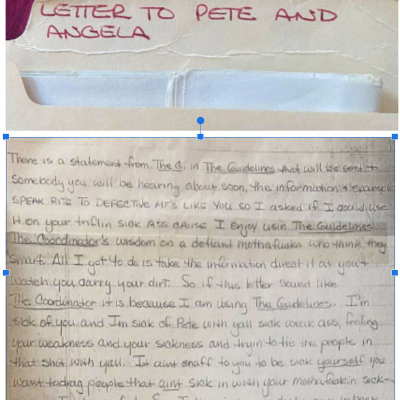 LETTER TO PETE AND
ANGELA
There is a statement from The C. in The Guidelines that will be sent to
somebody you will be hearing about soon, the information & example
SPEAK RITE TO DEFECTIVE MF'S LIKE YOU SO I asked if I could use
it on your triflin sick ASS CAUSE I enjoy usin The Guidelines
The Coordinator's wisdom on a defiant mothafucka who think they
smart. All I got to do is take the information direct it at you &
watch you carry your dirt. So if this letter sound like
The Coordinator it is because I am using The Guidelines. I'm
sick of you and I'm sick of Pete with yall sick weak ass, feeling
your weakness and your sickness and tryin to tie in people in
that shit with yall. It aint enuff to you to be sick yourself you
want to drag people that aint sick in with your mothafuckin sick-